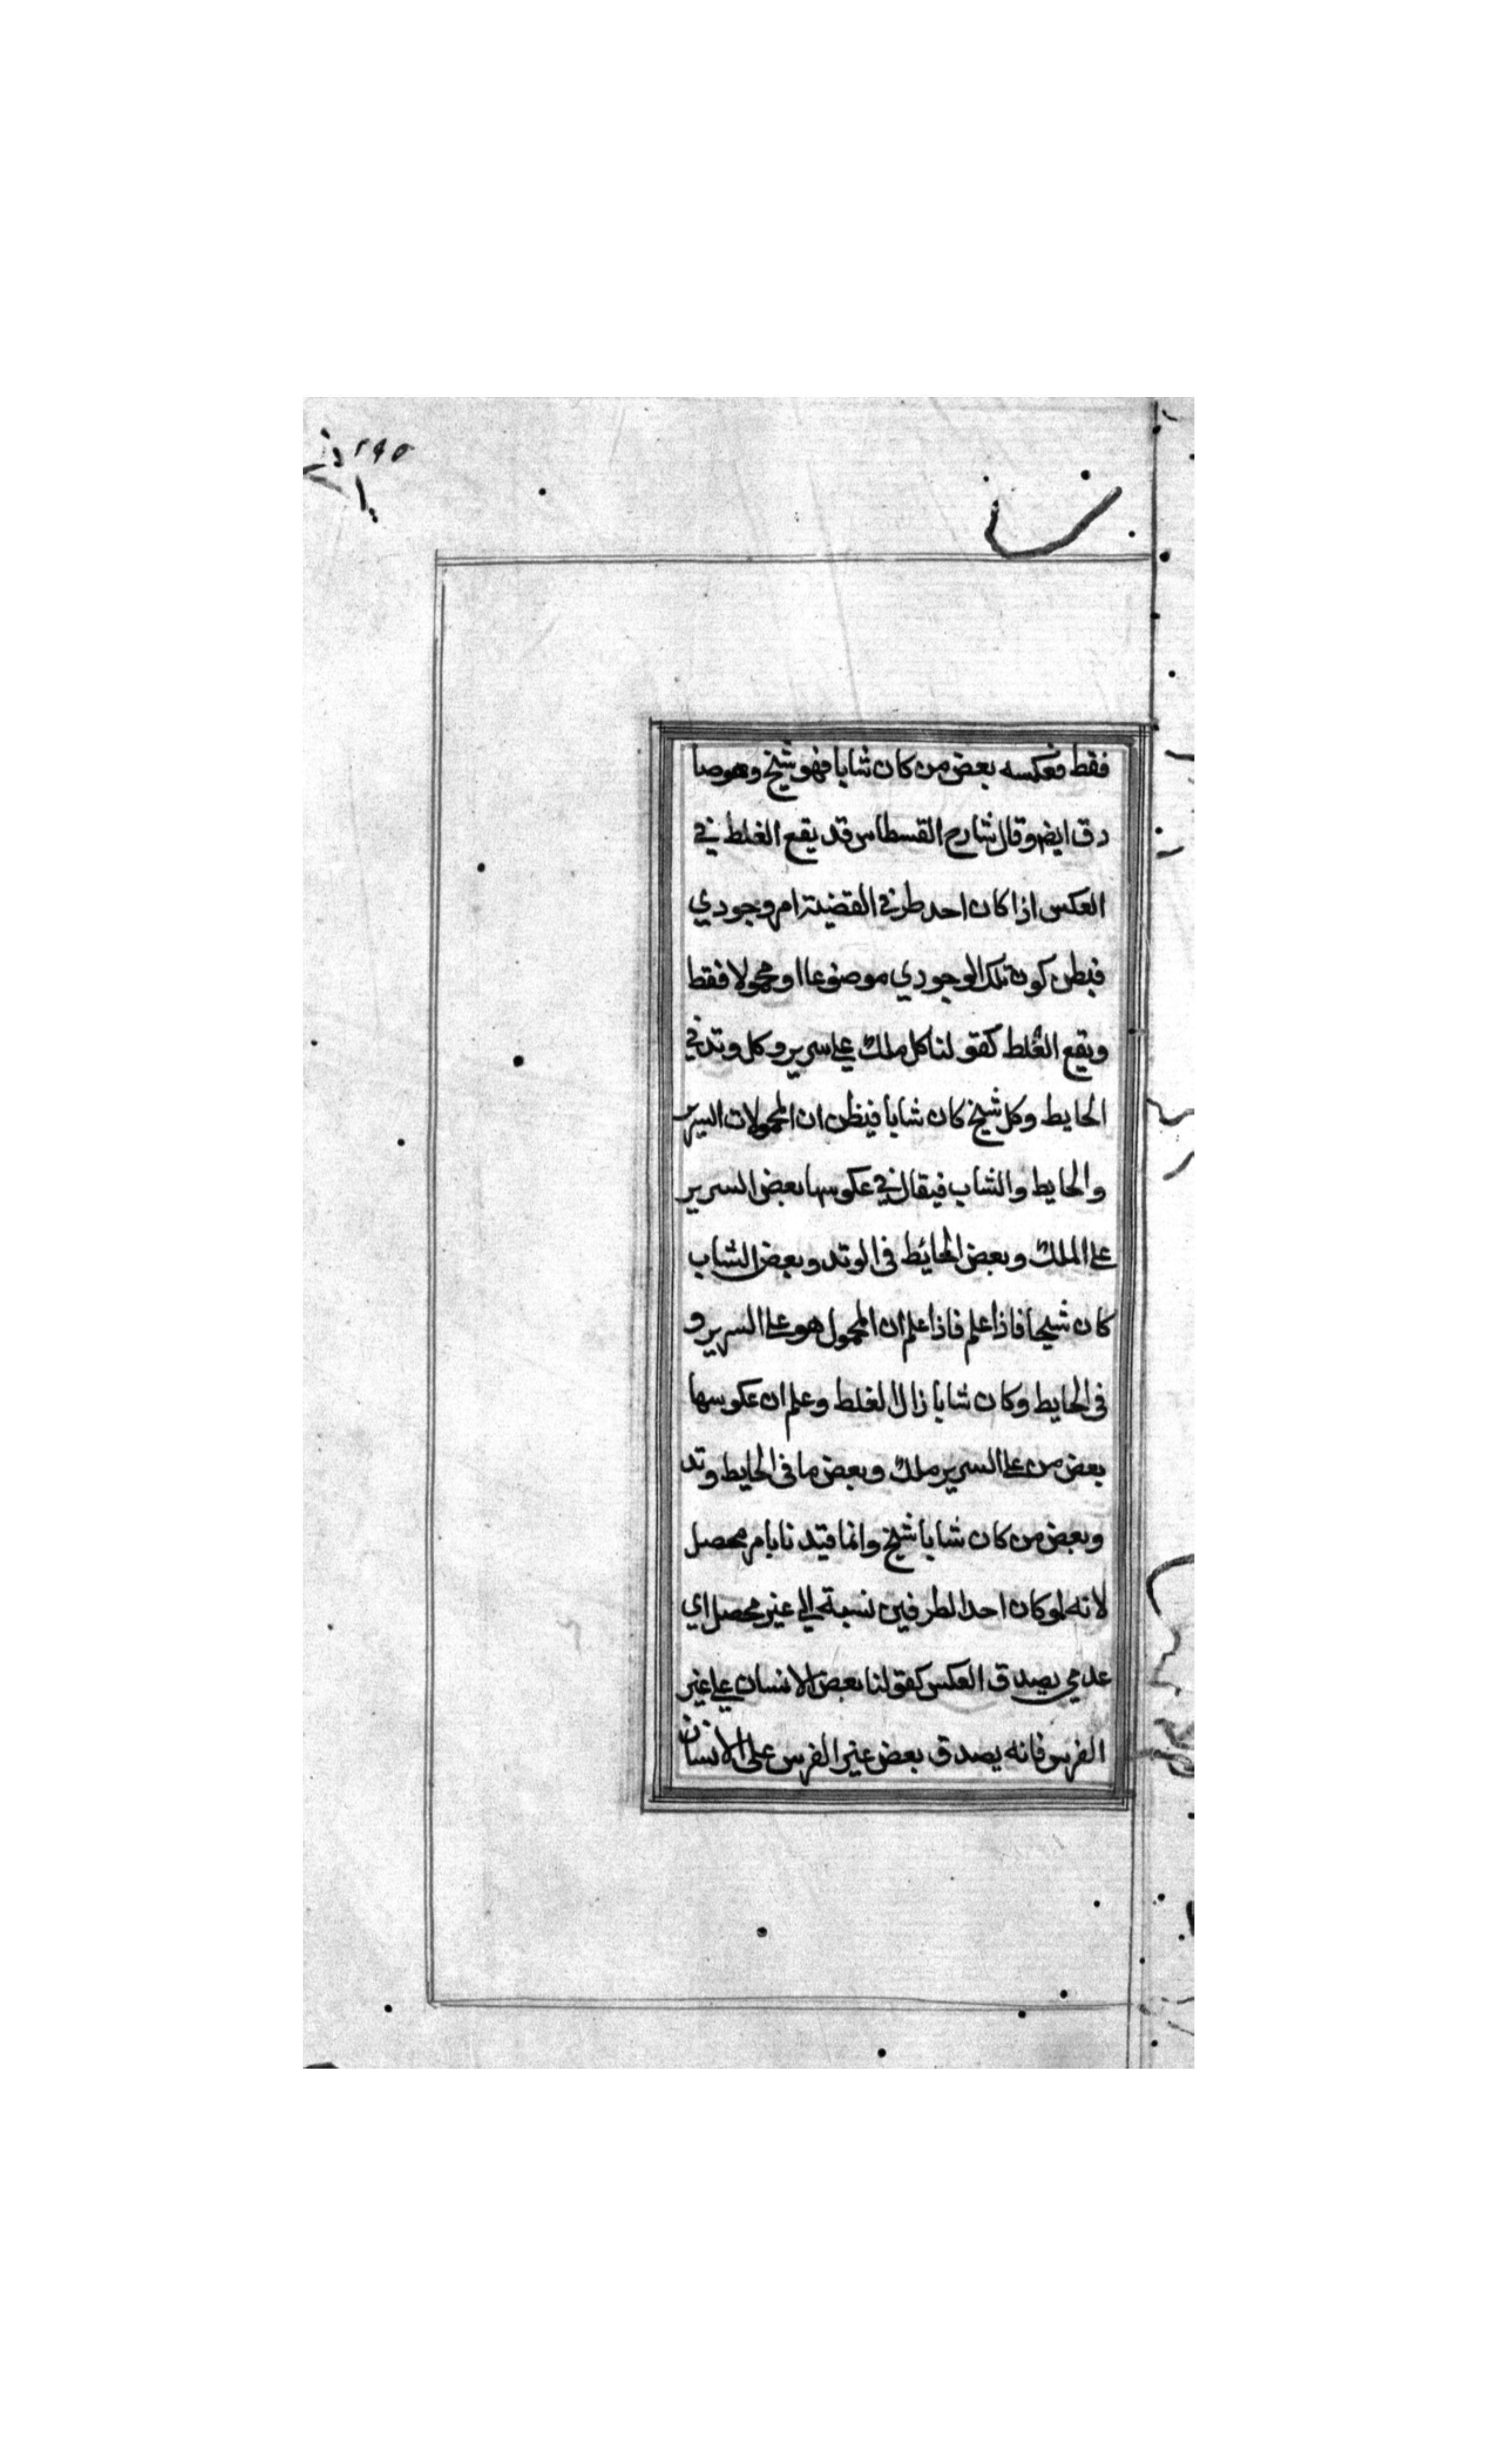 ٢٩٥
فقط فعكسه بعض من كان شابا فهو شيخ وهو صا
دق ايضو قال شارح القسطاس قد يقع الغلط في
العكس اذا كان احد طرفي القضية امر وجودي
فيظن كون تلك الوجودي موضوعا او محمولا فقط
ويقع الغلط كقولنا كل ملك علي سرير وكل وتد في
الحايط وكل شيخ كان شابا فيظن ان المحمولات السرير
والحايط والشاب فيقال في عكوسها بعض السرير
علي الملك وبعض الحائط في الوتد وبعض الشاب
كان شيخا فاذا علم فاذا علم ان المحمول هو علي السرير و
في الحايط وكان شابا زال الغلط وعلم ان عكوسها
بعض من علي السرير ملك وبعض ما في الحايط وتد
وبعض من كان شابا شيخ وانما قيدنا بامر محصل
لانه لو كان احد الطرفين نسبة الي غير محصل اي
عدمي يصدق العكس كقولنا بعض الانسان علي غير
الفرس فانه يصدق بعض غير الفرس على الانسان